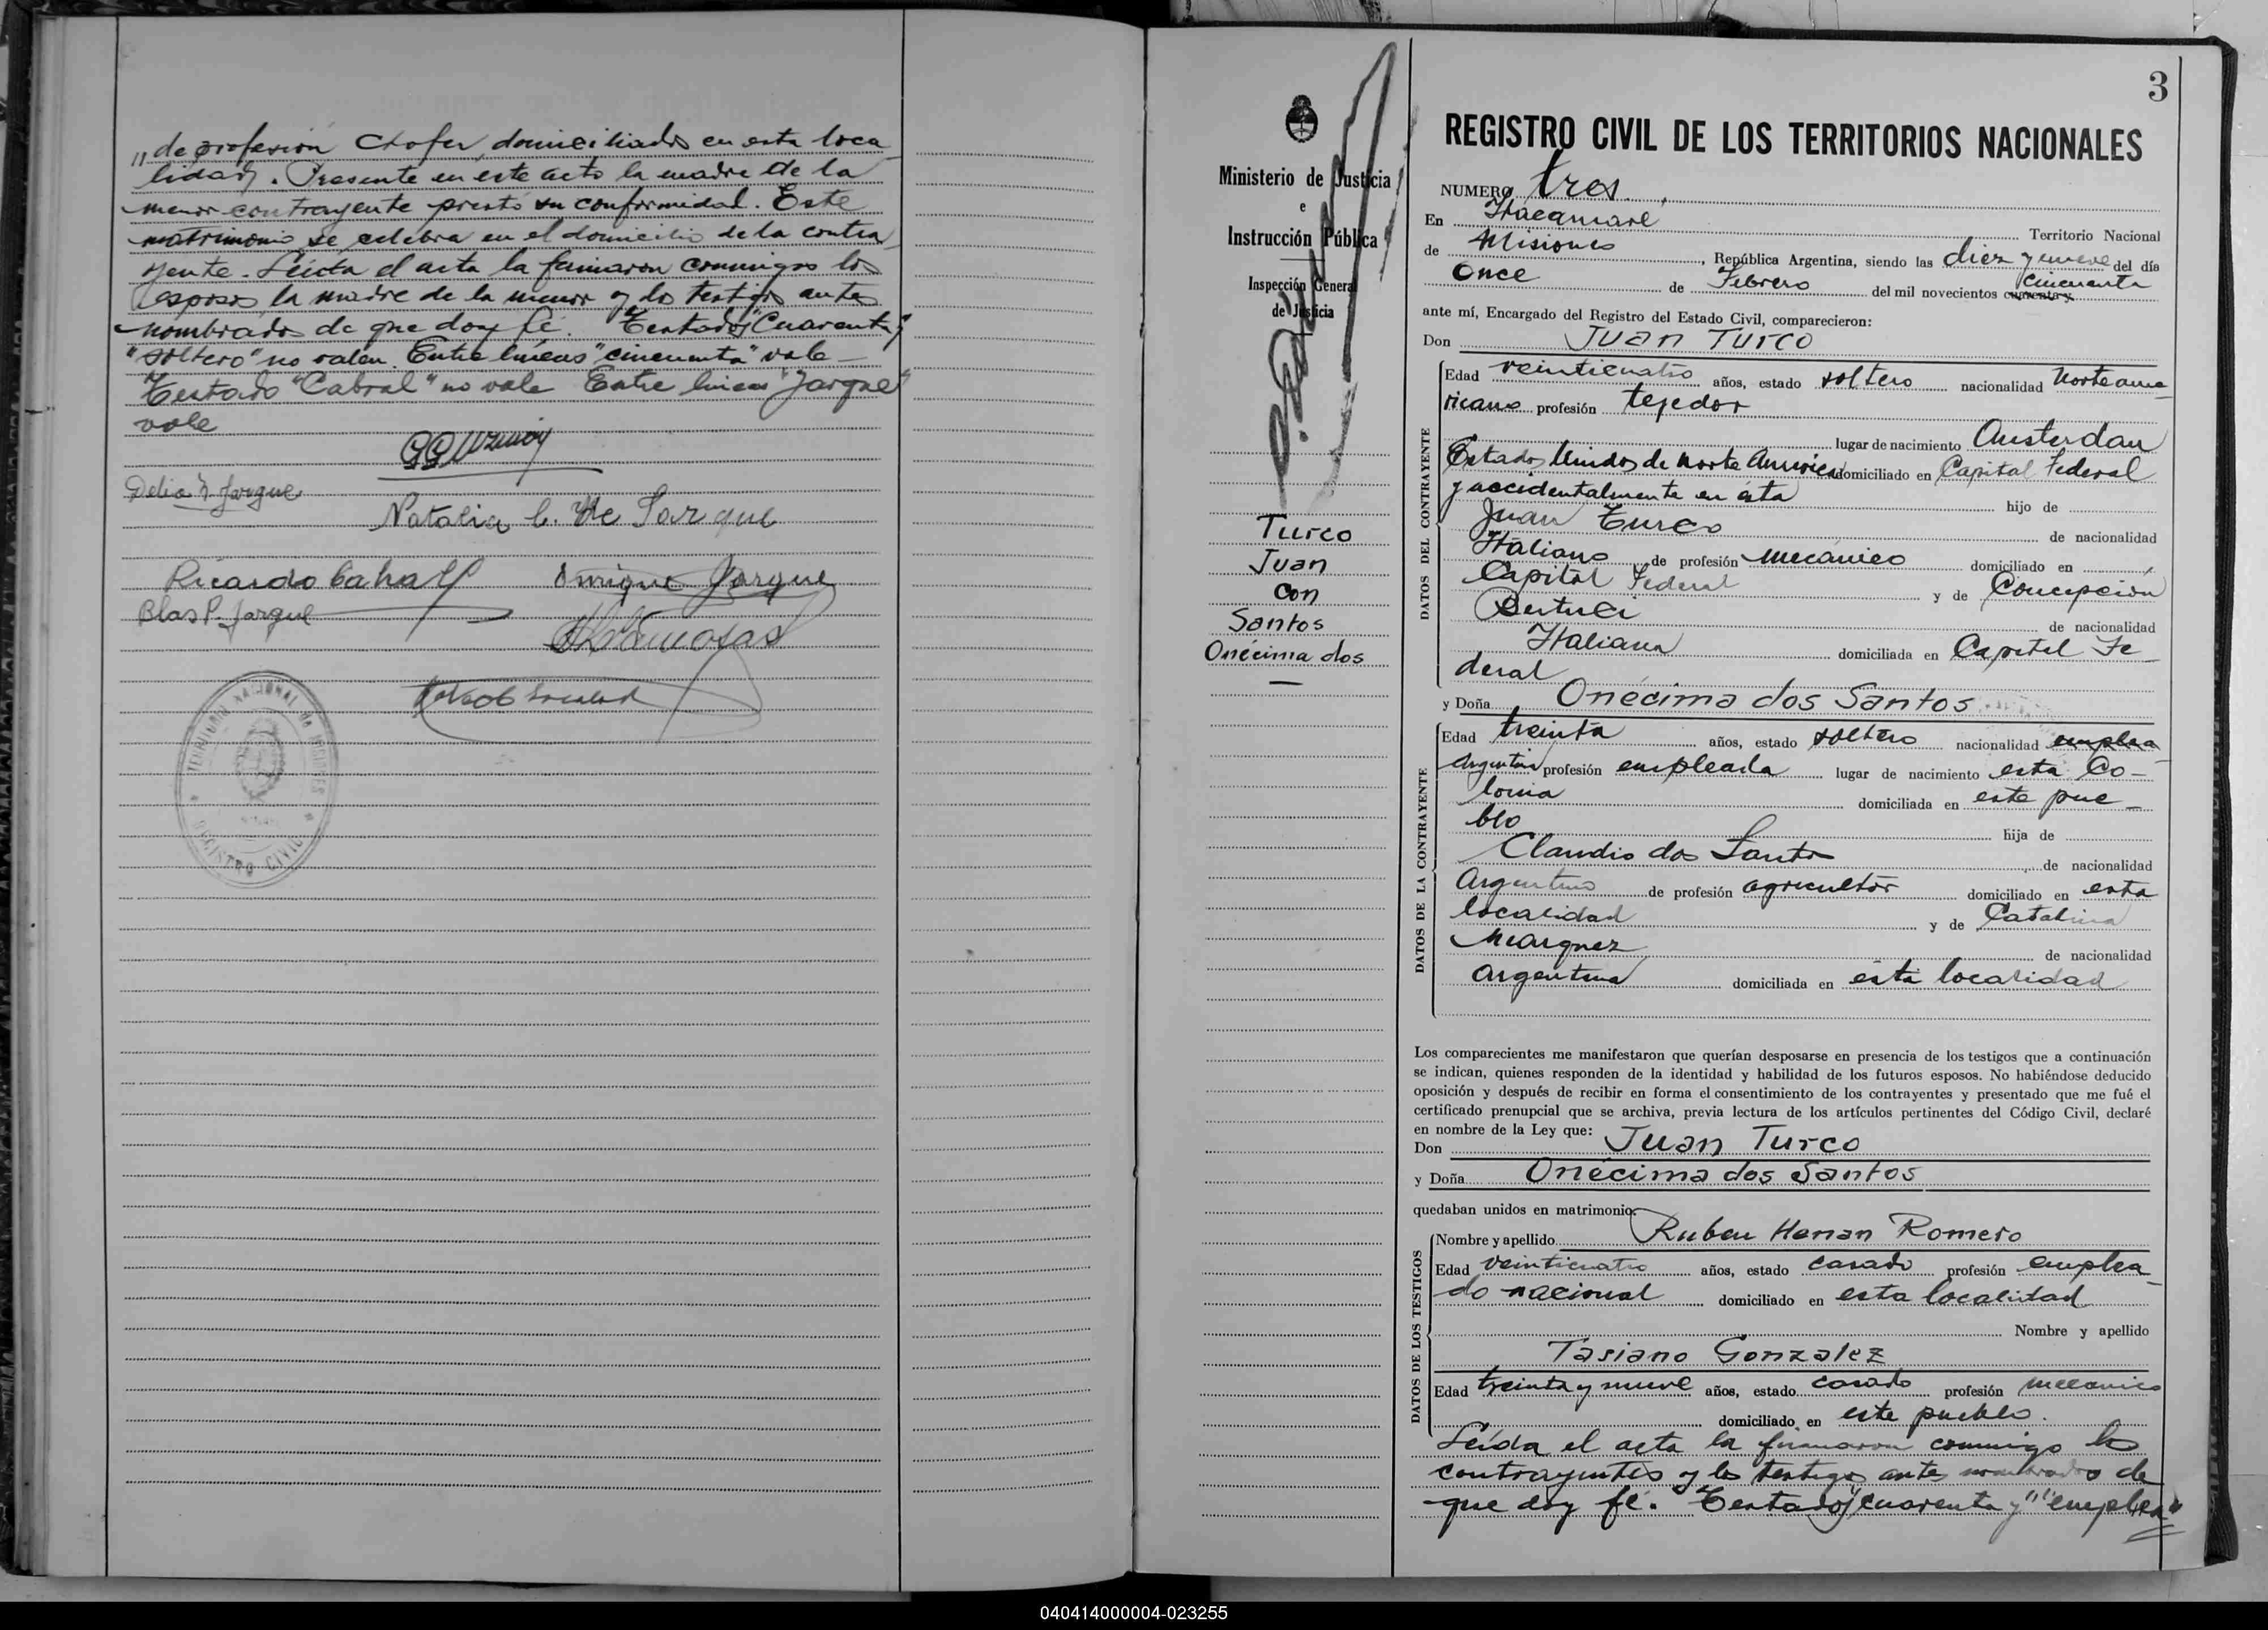 "de profesión Chofer, domiciliados en esta loca
lidad. Presente en este acto la madre de la
menor contrayente prestó su conformidad. Este
matrimonio se celebra en el domicilio de la contra
yente. Leida el acta la firmaron conmigo los
esposos la madre de la menor y los testigos antes
nombrados de que doy fé. Testados "Cuarenta y"
"soltero" no valen. Entre lineas "cincuenta" vale
Testado "Cabral" no vale Entre lineas "Jarque"
vale
Delia Jarque
Natalia C. de Jarque
Ricardo Cabral
Enrique Jarque
Blas P. Jarque
TERRITORIO NACIONAL DE MISIONES
REGISTRO CIVIL
3
Ministerio de Justicia
e
Instrucción Pública
Inspección General
de Justicia
Turco
Juan
con
Santos
Onécima dos
REGISTRO CIVIL DE LOS TERRITORIOS NACIONALES
NUMERO tres
En Itacaruaré Territorio Nacional
de Misiones, República Argentina, siendo las diez y nueve del día
Once de Febrero del mil novecientos cuarenta y cincuenta
ante mí, Encargado del Registro del Estado Civil, comparecieron:
Don Juan Turco
DATOS DEL CONTRAYENTE
Edad veinticuatro años, estado soltero nacionalidad Norteame
ricano profesión tejedor
lugar de nacimiento Amsterdan
Estados Unidos de Norte America domiciliado en Capital Federal
y accidentalmente en ésta hijo de
Juan Turco de nacionalidad
Italiano de profesión mecánico domiciliado en
Capital Federal y de Concepción
de nacionalidad
Italiana domiciliada en Capital Fe
deral
y Doña Onécima dos Santos
DATOS DE LA CONTRAYENTE
Edad treinta años, estado soltero nacionalidad emplea
Argentina profesión empleada lugar de nacimiento esta Co-
lonia domiciliada en este pue-
blo hija de
Claudio dos Santos de nacionalidad
Argentino de profesión agricultor domiciliado en esta
localidad y de Catalina
Marquez de nacionalidad
argentina domiciliada en esta localidad
Los comparecientes me manifestaron que querían desposarse en presencia de los testigos que a continuación
se indican, quienes responden de la identidad y habilidad de los futuros esposos. No habiéndose deducido
oposición y después de recibir en forma el consentimiento de los contrayentes y presentado que me fué el
certificado prenupcial que se archiva, previa lectura de los artículos pertinentes del Código Civil, declaré
en nombre de la Ley que:
Don Juan Turco
y Doña Onécima dos Santos
quedaban unidos en matrimonio.
DATOS DE LOS TESTIGOS
Nombre y apellido Ruben Hernan Romero
Edad veinticuatro años, estado casado profesión emplea
do nacional domiciliado en esta localidad
Nombre y apellido
Tasiano Gonzalez
Edad treinta y nueve años, estado casado profesión mecanico
domiciliado en este pueblo.
Leída el acta la firmaron conmigo los
contrayentes y los testigos antes nombrados de
que doy fé. Testados "cuarenta y" "emplea"
040414000004-023255